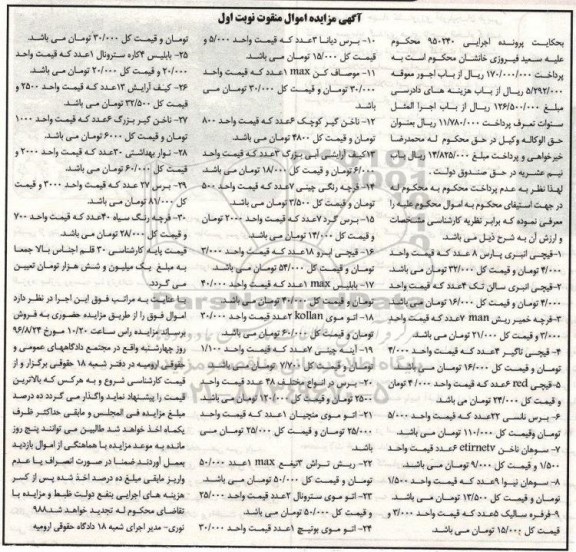 آگهی مزایده اموال منقوت نوبت اول
بحکایت پرونده اجرایی ۹۵۰۲۴۰ محکوم
علیه سعید فیروزی خانشان محکوم است به
پرداخت ۱۷۰/۰۰۰/۰۰۰ ریال از باب اجور معوقه
۵/۲۹۲/۰۰۰ ریال از باب هزینه های دادرسی
مبلغ ۱۲۶/۵۰۰/۰۰۰ ریال از باب اجرا المثل
سنوات تصرف پرداخت ۱۱/۷۸۰/۰۰۰ ریال بعنوان
حق الوکاله وکیل در حق محکوم له محمدرضا
خیرخواهی و پرداخت مبلغ ۱۳/۸۲۵/۰۰۰ ریال باب
نیم عشریه در حق صندوق دولت .
لهذا نظر به عدم پرداخت محکوم به محکوم له
در جهت استیفای محکوم به اموال محکوم علیه را
معرفی نموده که برابر نظریه کارشناسی مشخصات
و ارزش آن به شرح ذیل می باشد.
۱-قیچی انبری پارس ۸ عدد که قیمت واحد
۴/۰۰۰ تومان و قیمت کل ۳۲/۰۰۰ تومان می باشد.
۲-قیچی انبری سالن تک ۴عدد که قیمت واحد
۴/۰۰۰ تومان و قیمت کل ۱۶/۰۰۰ تومان می باشد.
۳-فرچه خمیر ریش man ۷عدد که قیمت واحد
۳/۰۰۰ و قیمت کل ۲۱/۰۰۰ تومان می باشد.
۴- قیچی ناگیر ۴عدد که قیمت واحد ۴/۰۰۰
تومان و قیمت کل ۱۶/۰۰۰ تومان می باشد.
۵-قیچی red ۶عدد که قیمت واحد ۴/۰۰۰ تومان
و قیمت کل ۲۴/۰۰۰ تومان می باشد.
۶- برس نانسی ۲۲عدد که قیمت واحد ۵/۰۰۰
تومان وقیمت کل ۱۱۰/۰۰۰ تومان می باشد.
۷- سوهان ناخن etirnetv ۶عدد قیمت واحد
۱/۵۰۰ و قیمت کل ۹/۰۰۰ تومان می باشد.
۸- سوهان نیوا ۹عدد که قیمت واحد ۱/۵۰۰
تومان و قیمت کل ۱۳/۵۰۰ تومان می باشد.
۹- فرفره سالیک ۵عدد که قیمت واحد ۳/۰۰۰ و
قیمت کل ۱۵/۰۰۰ تومان می باشد.
۱۰- برس دیانا ۳عدد که قیمت واحد ۵/۰۰۰ و
قیمت کل ۱۵/۰۰۰ تومان می باشد.
۱۱- موصاف کن max ۱عدد که قیمت واحد
۳۰/۰۰۰ تومان و قیمت کل ۳۰/۰۰۰ تومان می
باشد.
۱۲- ناخن گیر کوچک ۶عدد که قیمت واحد ۸۰۰
تومان و قیمت کل ۴۸۰۰ تومان می باشد.
۱۳-کیف آرایشی آبی بزرگ ۳عدد که قیمت واحد
۶/۰۰۰ تومان و قیمت کل ۱۸/۰۰۰ تومان می باشد.
۱۴- فرچه رنگی چینی ۷عدد که قیمت واحد ۵۰۰
تومان و قیمت کل ۳/۵۰۰ تومان می باشد.
۱۵- برس گرد ۷عدد که قیمت واحد ۲۰۰۰ تومان
و قیمت کل ۱۴/۰۰۰ تومان می باشد.
۱۶- قیچی ابرو ۱۸عدد که قیمت واحد ۳/۰۰۰
تومان و قیمت کل ۵۴/۰۰۰ تومان می باشد.
۱۷- بابلیس max ۱عدد که قیمت واحد ۴۰/۰۰۰
تومان و قیمت کل ۴۰/۰۰۰ تومان می باشد.
۱۸- اتو موی kollan ۲عدد قیمت واحد ۳۰/۰۰۰
تومان و قیمت کل ۶۰/۰۰۰ تومان می باشد.
۱۹- آینه چینی ۷عدد که قیمت واحد ۱/۱۰۰
تومان و قیمت کل ۷/۷۰۰ تومان می باشد.
۲۰- برس در انواع مختلف ۴۸ عدد قیمت واحد
۲۵۰۰ تومان و قیمت کل ۱۲۰/۰۰۰ تومان می باشد.
۲۱- اتو موی منچیان ۱عدد که قیمت واحد
۲۵/۰۰۰ تومان و قیمت کل ۲۵/۰۰۰ تومان می
باشد.
۲۲- ریش تراش ۳تیغ max ۱عدد ۵۰/۰۰۰
تومان و قیمت کل ۵۰/۰۰۰ تومان می باشد.
۲۳- اتو موی سترونال ۲عدد که قیمت واحد ۲۵/۰۰۰
تومان و قیمت کل ۵۰/۰۰۰ تومان می باشد.
۲۴- اتو موی بوتیچ ۱عدد قیمت واحد ۳۰/۰۰۰
تومان و قیمت کل ۳۰/۰۰۰ تومان می باشد.
۲۵- بابلیس ۴کاره سترونال ۱عدد که قیمت واحد
۲۰/۰۰۰ و قیمت کل ۲۰/۰۰۰ تومان می باشد.
۲۶- کیف آرایش ۱۳عدد که قیمت واحد ۲۵۰۰ و
قیمت کل ۳۲/۵۰۰ تومان می باشد.
۲۷- ناخن گیر بزرگ ۶عدد که قیمت واحد ۱۰۰۰
تومان و قیمت کل ۶۰۰۰ تومان می باشد.
۲۸- نوار بهداشتی ۳۰عدد که قیمت واحد ۲۰۰۰ و
قیمت کل ۶۰/۰۰۰ تومان می باشد.
۲۹- برس ۲۷ عدد که قیمت واحد ۳۰۰۰ و قیمت
کل ۸۱/۰۰۰ تومان می باشد.
۳۰- فرچه رنگ سیاه ۴۰عدد که قیمت واحد ۷۰۰
و قیمت کل ۲۸/۰۰۰ تومان می باشد.
قیمت پایه کارشناسی ۳۰ قلم اجناس بالا جمعا
به مبلغ یک میلیون و شش هزار تومان تعیین
می گردد.
باعنایت به مراتب فوق این اجرا در نظر دارد
اموال فوق را از طریق مزایده حضوری به فروش
برساند مزایده راس ساعت ۱۰/۲۰ مورخ ۹۶/۸/۲۴
روز چهارشنبه واقع در مجتمع دادگاههای عمومی و
حقوقی ارومیه در دفتر شعبه ۱۸ حقوقی برگزار و از
قیمت کارشناسی شروع و به هرکس که بالاترین
قیمت را پیشنهاد نماید واگذار می گردد ده درصد
مبلغ مزایده فی المجلس و مابقی حداکثر ظرف
یکماه اخذ خواهد شد طالبین می توانند پنج روز
مانده به موعد مزایده با هماهنگی از اموال بازدید
بعمل آورند.ضمنا در صورت انصراف یا عدم
واریز مابقی مبلغ ده درصد اخذ شده پس از کسر
هزینه های اجرایی بنفع دولت ظبط و مزایده با
تقاضای محکوم له تجدید خواهد شد.۹۸۸
نوری- مدیر اجرای شعبه ۱۸ دادگاه حقوقی ارومیه